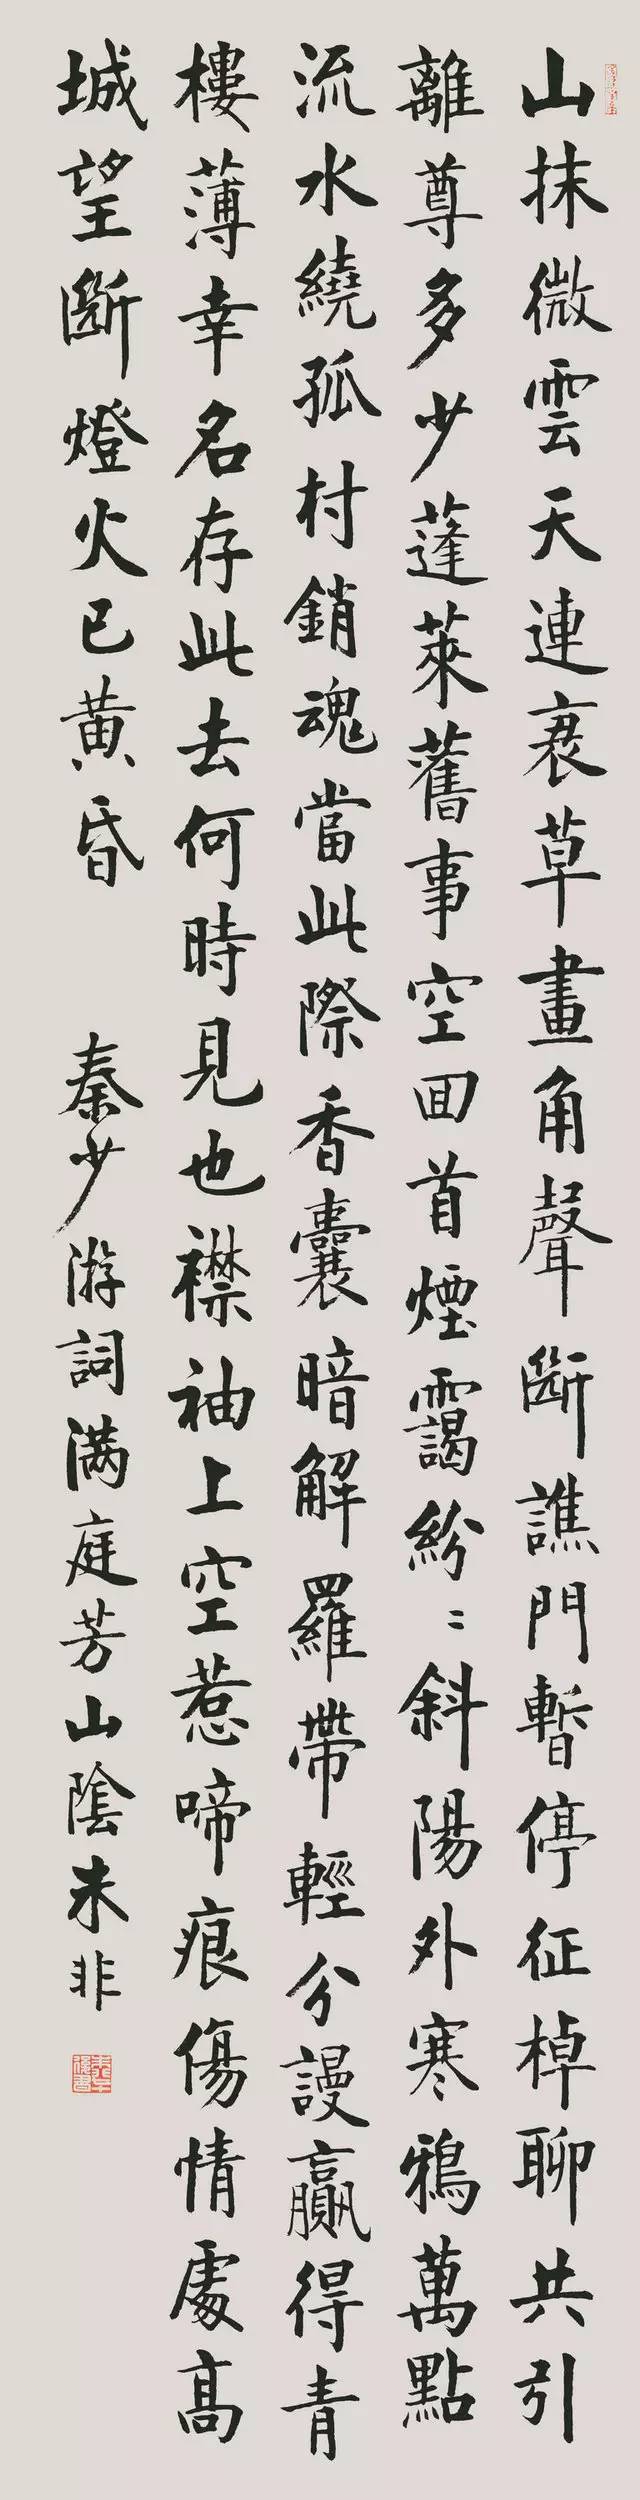 山抹微雲天連衰草畫角聲斷譙門暫停征棹聊共引
離尊多少蓬萊舊事空回首煙靄紛〻斜陽外寒鴉萬點
流水繞孤村銷魂當此際香囊暗解羅帶輕分謾贏得青
樓薄幸名存此去何時見也襟袖上空惹啼痕傷情處高
城望斷燈火已黃昏 秦少游詞满庭芳山陰朱非